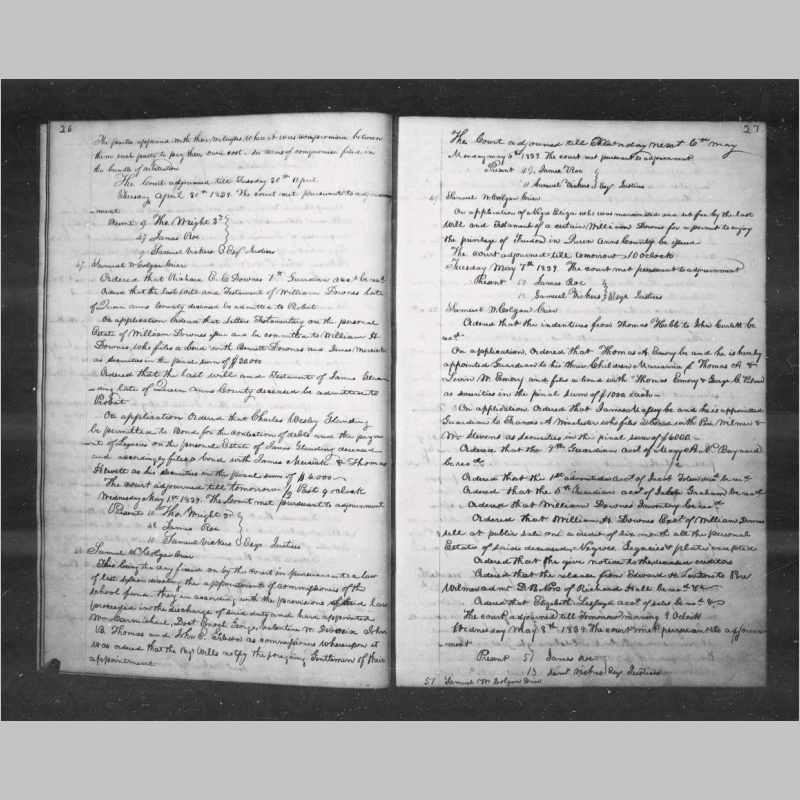 26
The parties appeared with their witnesses where it was compromised between
them each party to pay their own cost. The terms of compromise filed in
the bundle of
The Court adjourned till Tuesday 30th April
Tuesday April 30th 1839. The court met pursuant to adjourn
ment
Present Tho. Wright 3d
47 James Roe
9 Samuel Vickers Esqr Justices
47 Samuel W Colgan Crier
Ordered that Richard E. C. Downes 7th Guardian acct be recd
Ordered that the last will and Testament of William Downes late
of Queen Anns County deceased be admitted to Probat
On application Ordered that letters Testamentary on the personal
Estate of William Downes be committed to William H.
Downes, who files a bond with Bennett Downes and James Merrick
as securities in the penal sum of $20000
Ordered that the last will and Testament of James Gland
ing late of Queen Anns County deceased be admitted to
Probat
On application Ordered that Charles Wesley Glanding
be permitted to Bond for the of debts and the paym
ent of Legacies on the personal Estate of James Glanding deceased
and accordingly files a bond with James Merrick & Thomas
Hewett as his securities in the penal sum of $6.000
The court adjourned till tomorrow 1/2 Past 9 oclock
Wednesday May 1st 1839. The Court met pursuant to adjournment
Present 10 Tho Wright 3d
48 James Roe
10 Samuel Vickers Esqr Justices
Samuel W. Colgan Crier
This being the day fixed on by the court in pursuance to a law
of last session directing the appointment of commissioners of the
school fund they in according with the provisions of said have
proceeded in the discharge of said duty and have appointed
Wm Carmichael, Doct Enoch George, Valentine John
B. Thomas and John C. as commissioners whereupon it
was ordered that the Reg Wills notify the foregoing Gentlemen of their
appointment
27
The Court adjourned till Monday next 6th May
Monday May 6th 1839. The court met pursuant to adjournment
Present 49 James Roe
11 Samuel Vickers Esqr Justices
49 Samuel W Colgan Crier
On application of Negro who was manumitted and set free by the last
Will and Testament of a certain William Downes for a permit to enjoy
the privilege of freedom in Queen Anns County be
The court adjourned till tomorrow 10 oclock
Tuesday May 7th 1839. The court met pursuant to adjournment
Present 50 James Roe
12 Samuel Vickers Esqr Justices
Samuel W. Colgan Crier
Ordered that the indentures from Thomas Webb to John be
recd
On application, Ordered that Thomas A. Emory be and he is hereby
appointed Guardian to his three Children Thomas A &
W. Emory and files a bond with Thomas Emory & George C.
as securities in the penal sum of $1000 each
On application Ordered that James be and he is appointed
Guardian to Frances A Winchester who files a bond with Pere Wilmer &
Wm Stevens as securities in the penal sum of $6000
Ordered that the 7th Guardian acct of Mary A. Baynard
be recd
Ordered that the 1st acct of Jacob be recd
Ordered that the 5th Guardian acct of Graham be recd
Ordered that William Downes Inventory be recd
Ordered that William H. Downes Exct of William Downes
sell at public sale on a credit of six month all the personal
Estate of said deceased, Negroes Legacies & plate excepted
Ordered that he give notice to the deceased creditors
Ordered that the release from Edward to Pere
Wilmer admr D. B. of Richard Hall be recd &c
Ordered that Elizabeth acct of sales be recd &c
The court adjourned till Tomorrow Morning 9 Oclock
Wednesday May 8th 1839. The court met pursuant to adjourn
ment
Present 51 James Roe
13 Saml Vickers Esqr Justices
51 Samuel W. Colgan Crier